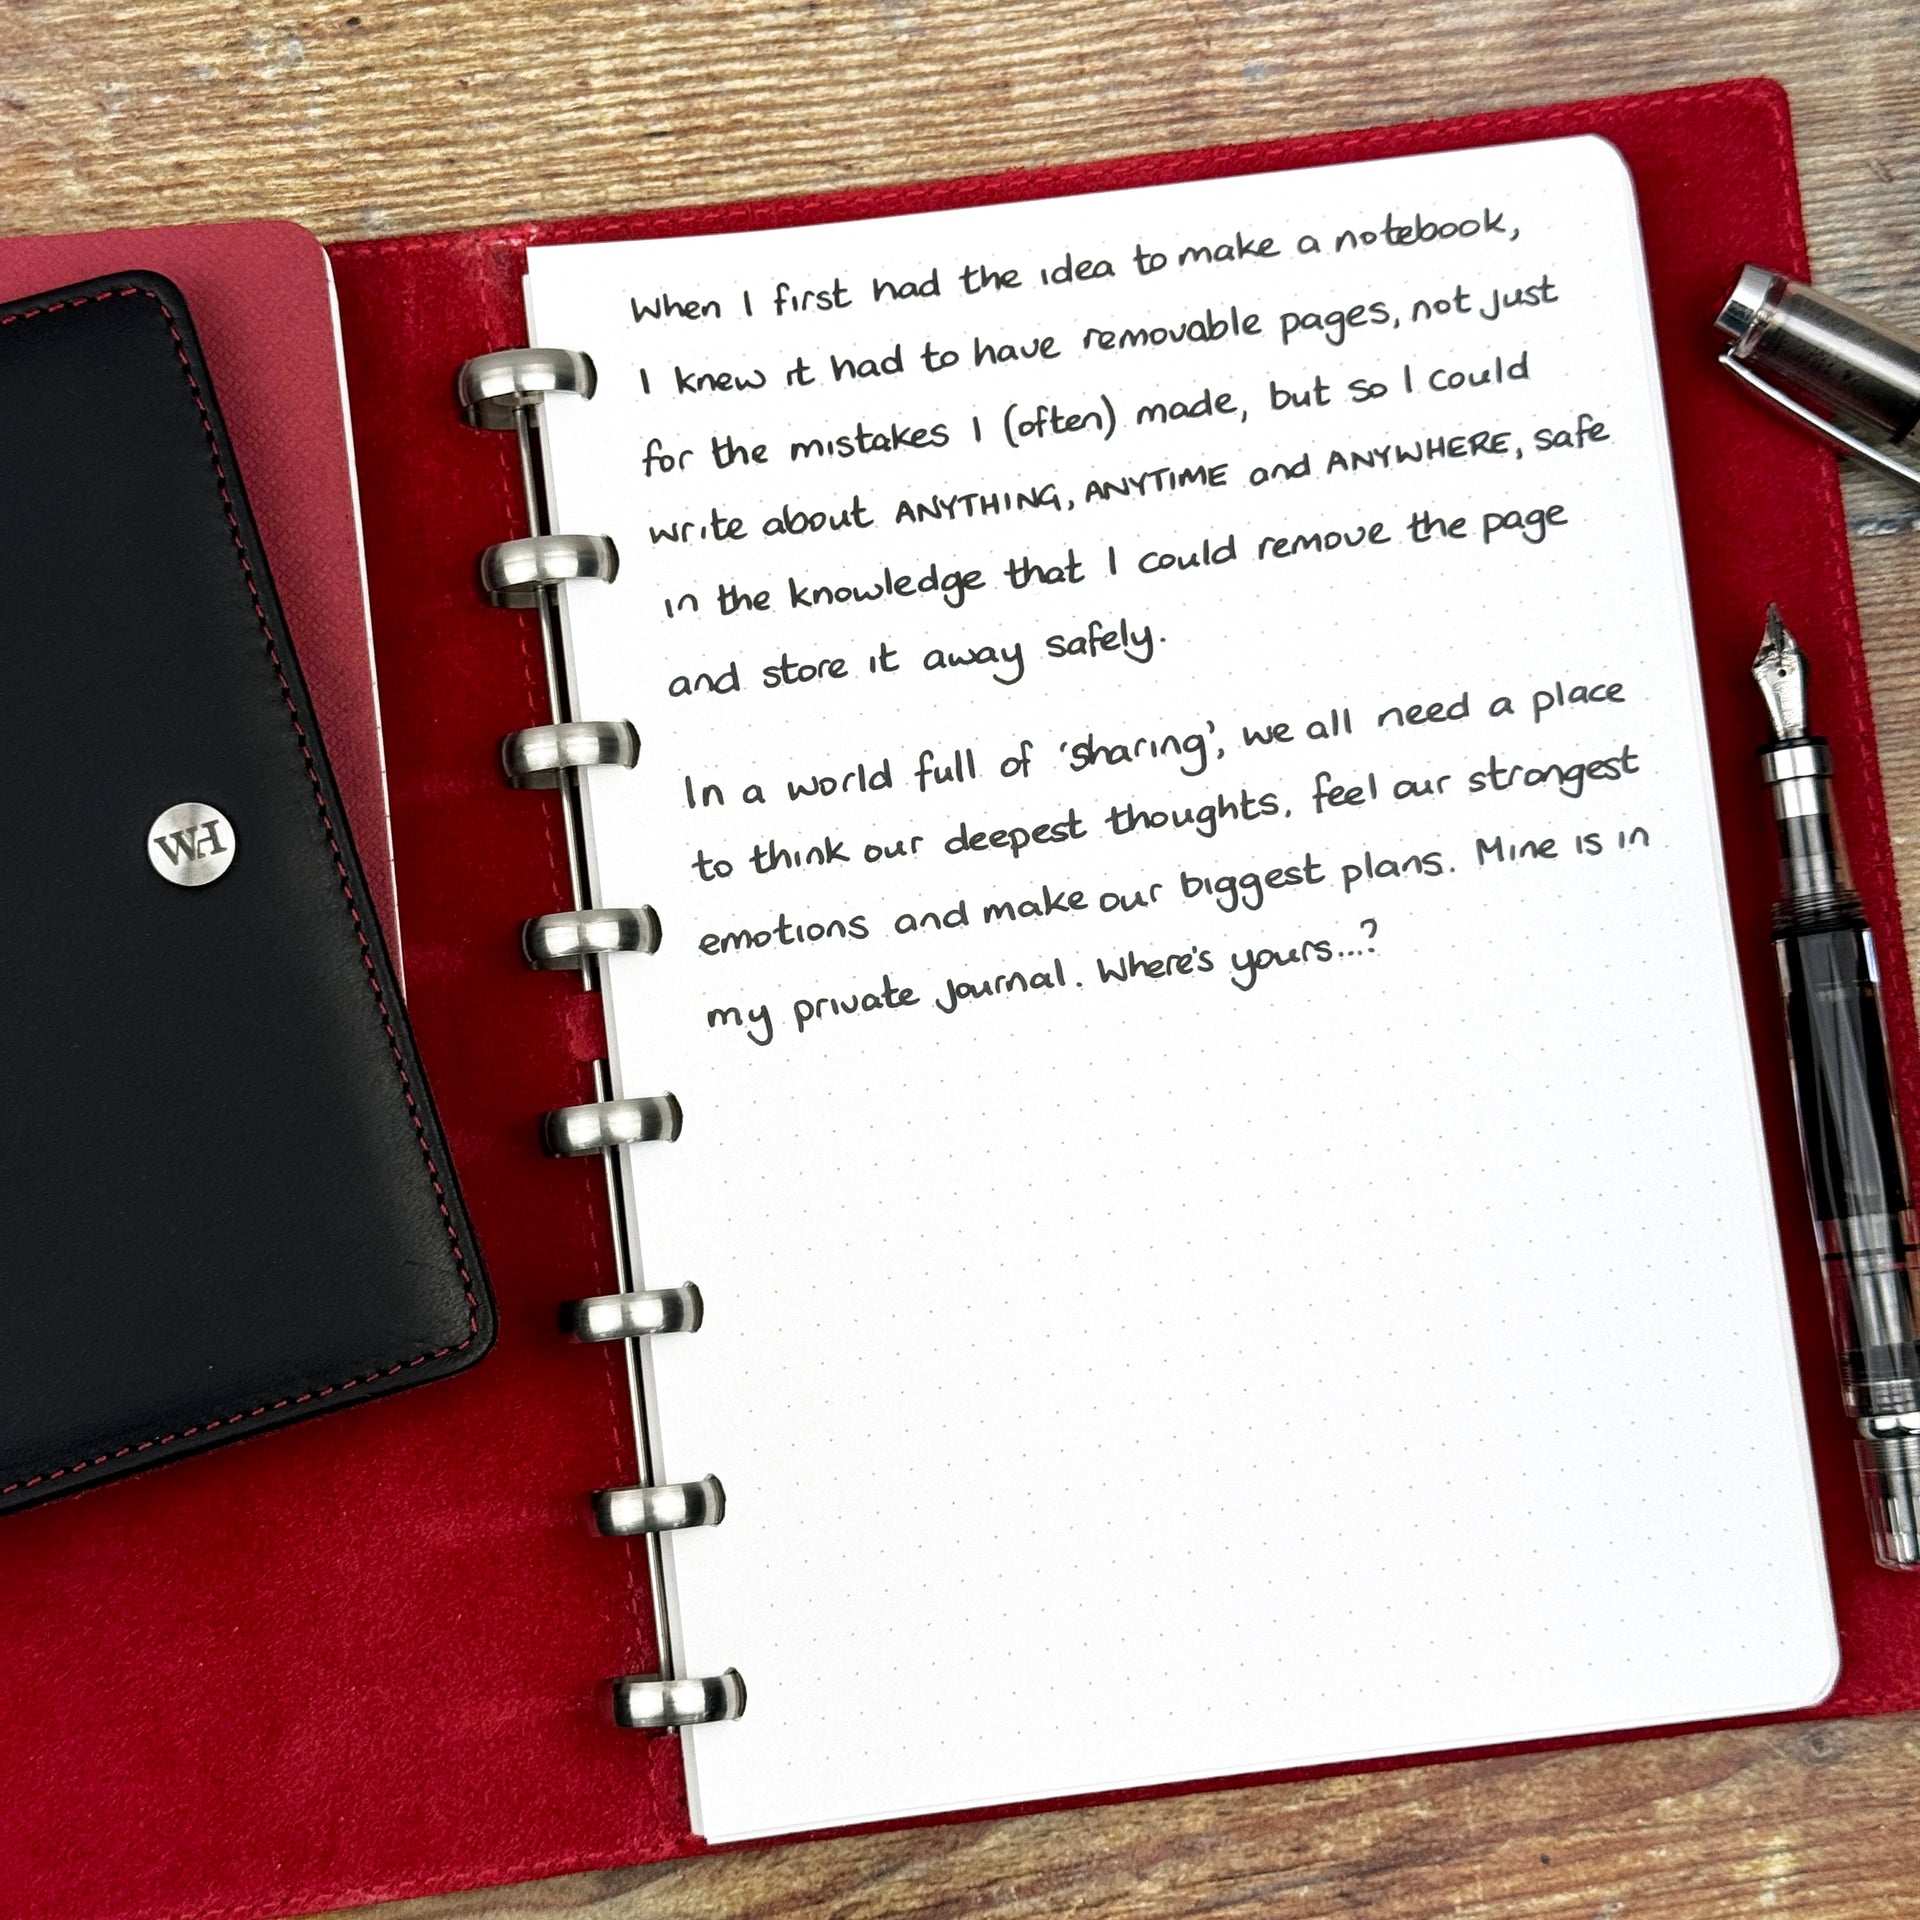 When I first had the idea to make a notebook,
I knew it had to have removable pages, not just
for the mistakes I (often) made, but so I could
write about ANYTHING, ANYTIME and ANYWHERE, safe
in the knowledge that I could remove the page
and store it away safely.
In a world full of 'sharing', we all need a place
to think our deepest thoughts, feel our strongest
emotions and make our biggest plans. Mine is in
my private journal. Where's yours...?
WH